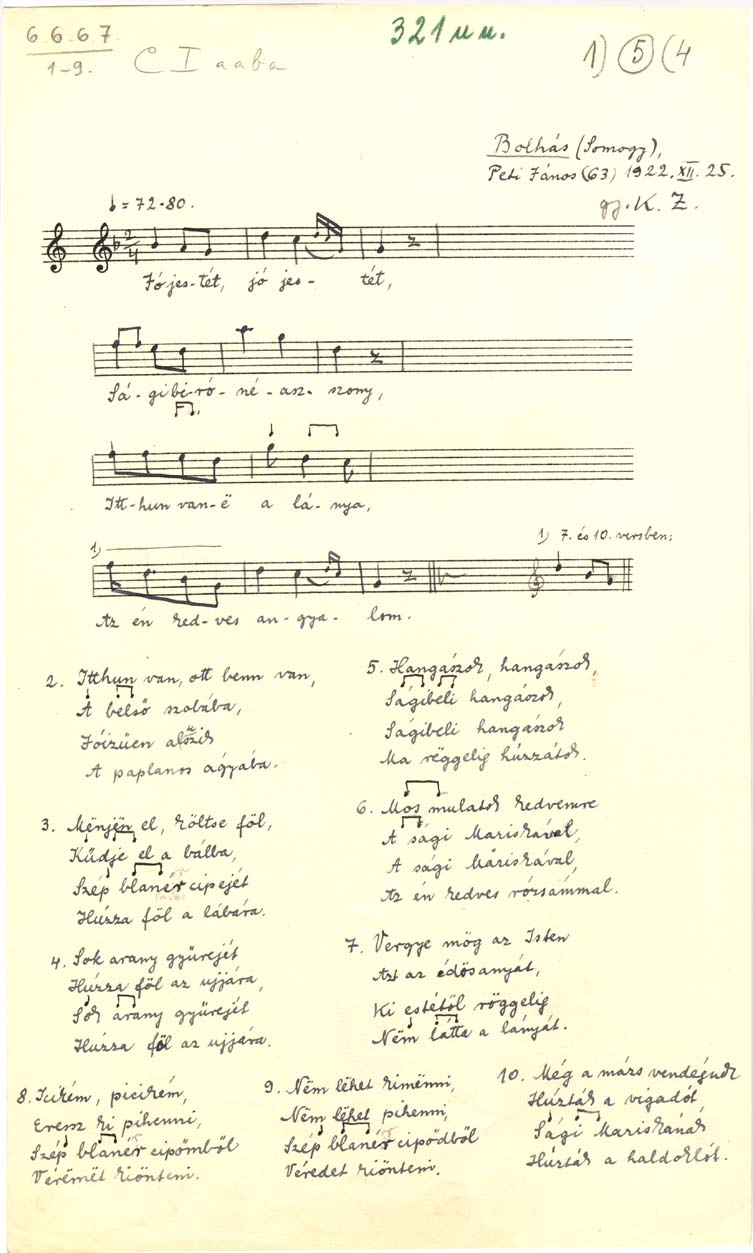 6 6.6 7.
1-9.
C I aaba
321 u u.
1) 5 (4
Bolhás (Somogy),
Peti János (63) 1922. XII. 25.
gy. K. Z.
= 72-80.
2/4
Jó jes-tét, jó jes- tét,
Sá-gi bi-ró-né-asz-szony,
Itt-hun van-ë a lá-nya,
1)
1) 7. és 10. versben:
Az én ked-ves an-gya-lom.
2. Itthun van, ott benn van,
A belső szobába,
Jóizüen alszik
A paplanos ágyába.
3. Mënjën el, költse föl,
Küdje el a bálba,
Szép blanér cipejét
Húzza föl a lábára.
4. Sok arany gyürejét
Húzza föl az ujjára,
Sok arany gyürejét
Húzza föl az ujjára.
5. Hangászok, hangászok,
Ságibeli hangászok,
Ságibeli hangászok
Ma rëggelig húzzátok.
6. Mos mulatok kedvemre
A sági Mariskával,
A sági Mariskával,
Az én kedves rózsámmal.
7. Vergye mög az Isten
Azt az édösanyát,
Ki estétöl röggelig
Nëm látta a lányát.
8. Icikém, picikém,
Eressz ki pihenni,
Szép blanér cipömböl
Vérëmët kiönteni.
9. Nëm lëhet kimënni,
Nëm lëhet pihenni,
Szép blanér cipödböl
Véredet kiönteni.
10. Még a mázs vendégnek
Húzták a vigadót,
Sági Mariskának
Húzták a haldoklót.